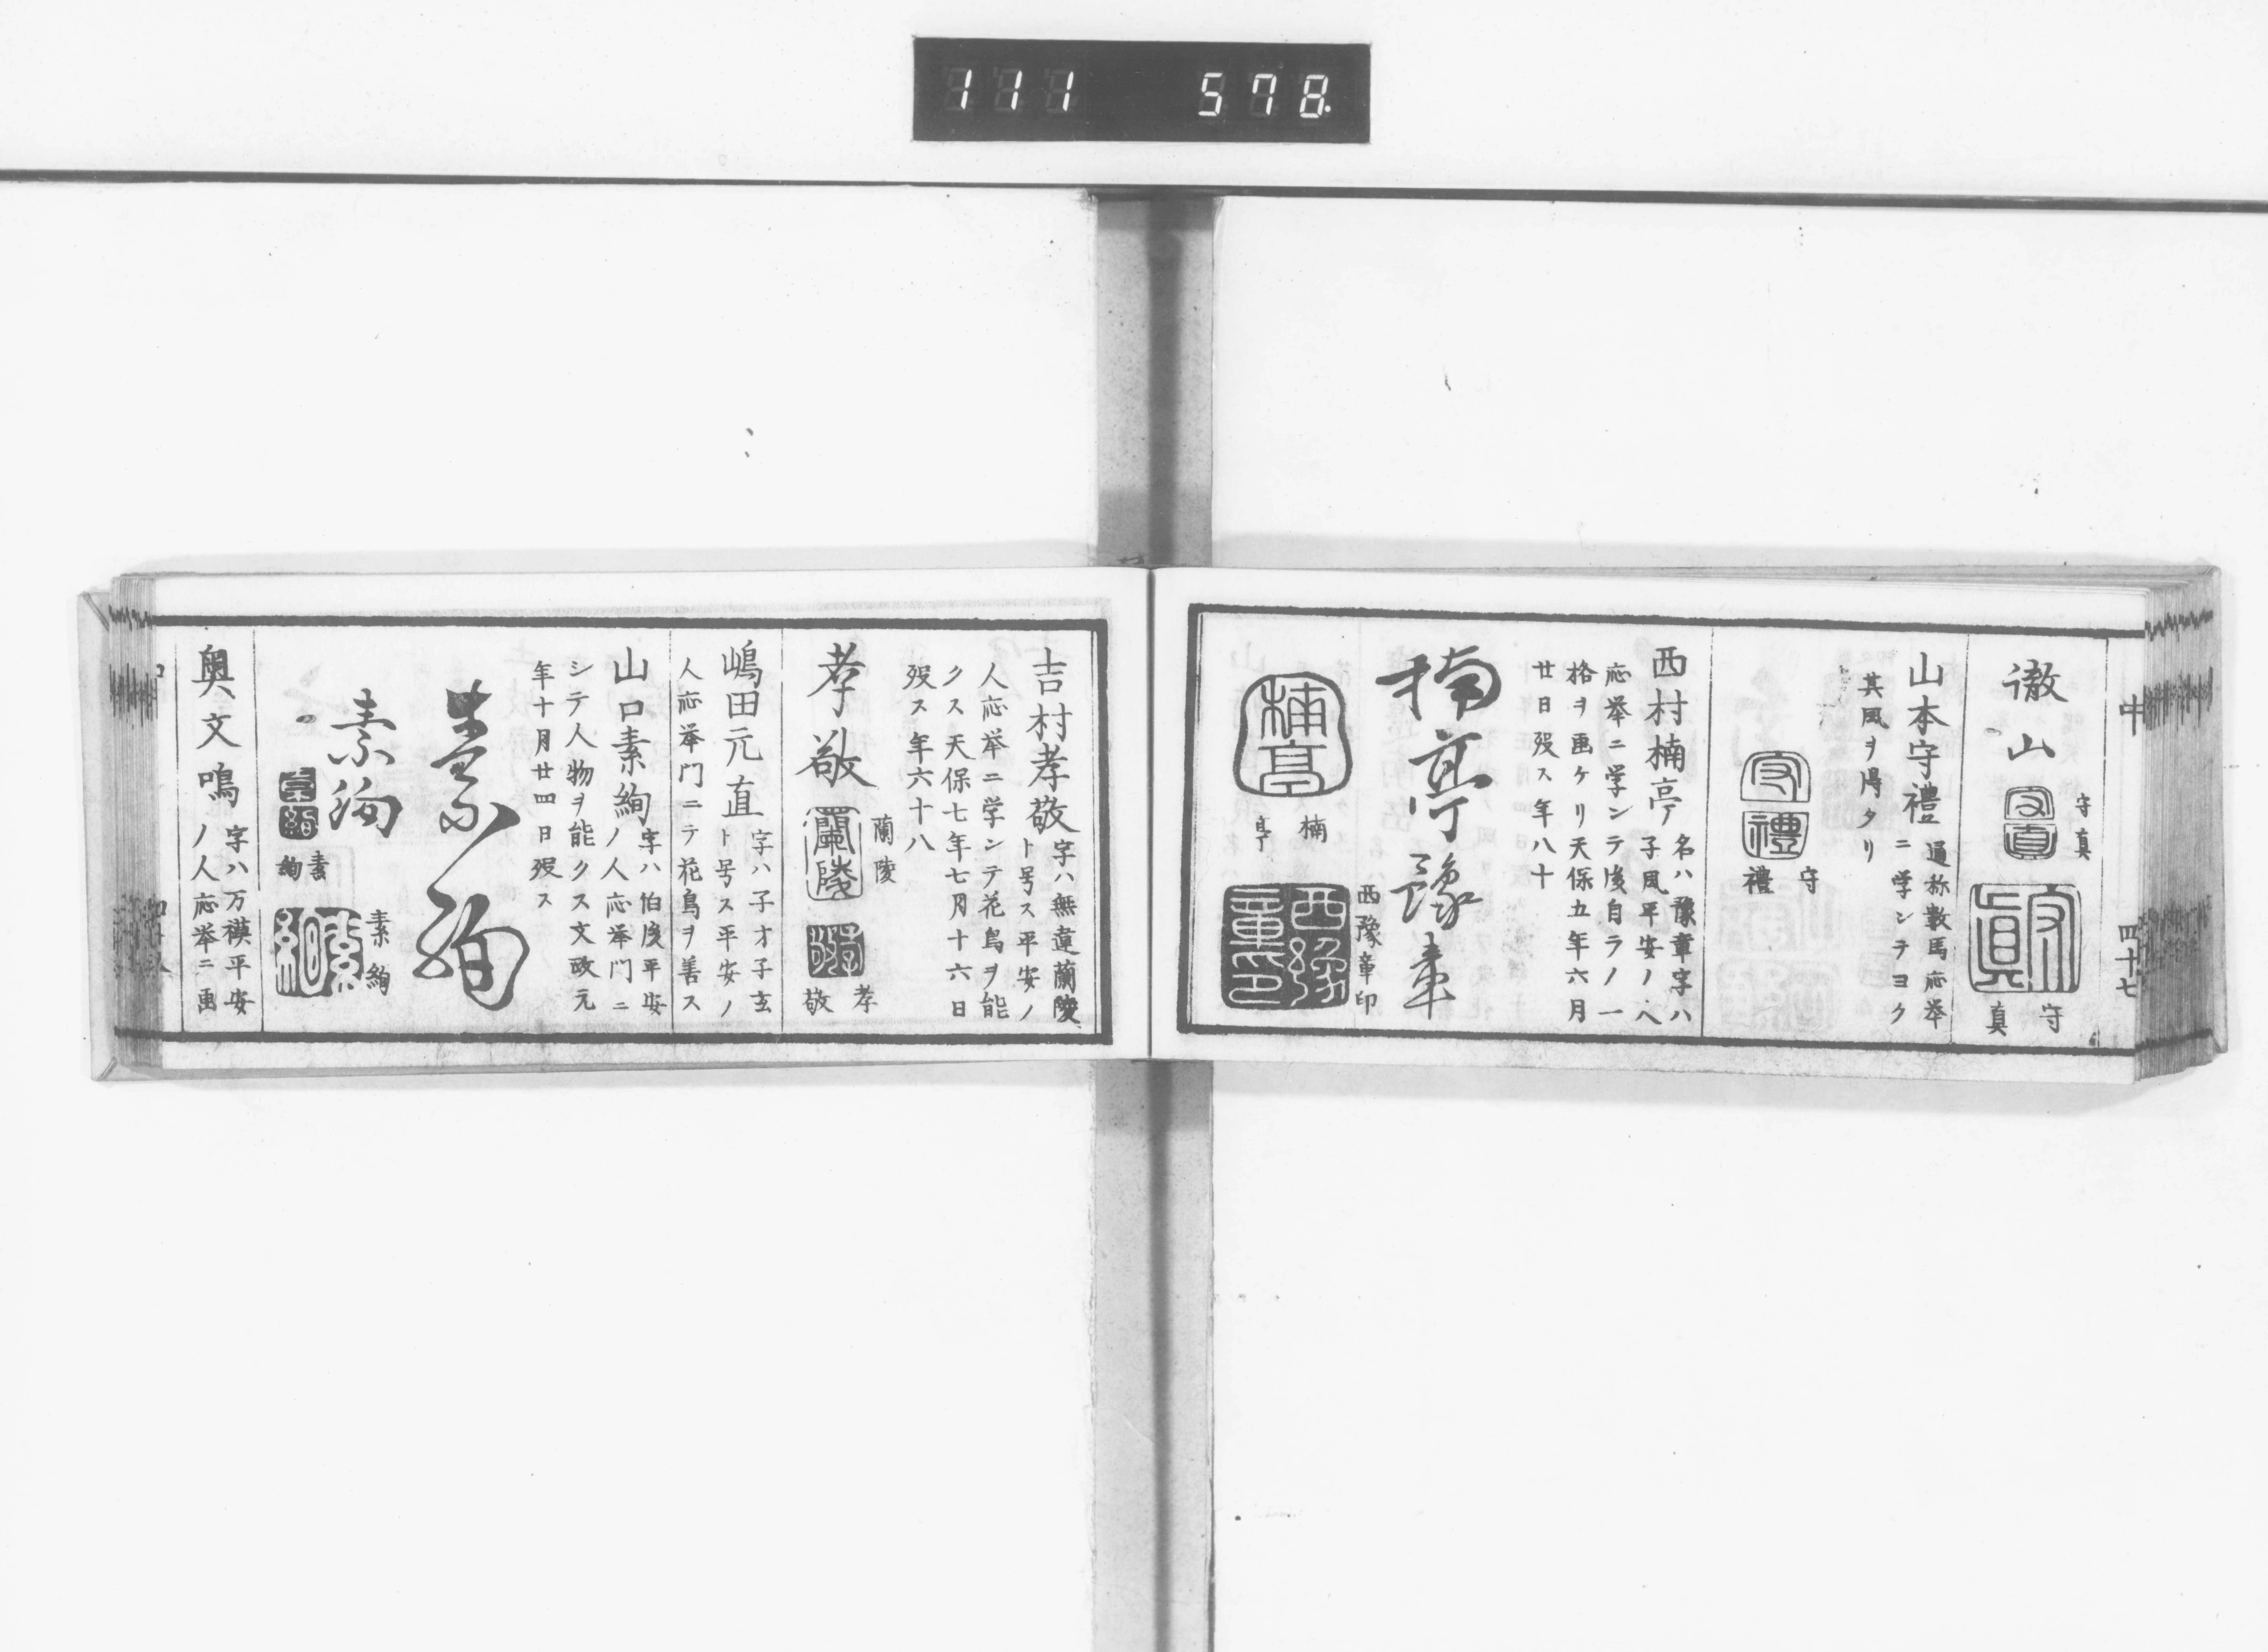 111 578.
中
四十七
徹山
守真
守真
山本守禮
通称数馬応挙
ニ学ンテヨク
其風ヲ得タリ
守禮
西村楠亭
名ハ豫章字ハ
子風平安ノ人
応挙ニ学ンテ後自ラノ一
格ヲ画ケリ天保五年六月
廿日歿ス年八十
楠亭豫章
楠亭
西豫章印
吉村孝敬
字ハ無違蘭陵
ト号ス平安ノ
人応挙ニ学ンテ花鳥ヲ能
クス天保七年七月十六日
歿ス年六十八
孝敬
蘭陵
孝敬
嶋田元直
字ハ子才子玄
ト号ス平安ノ
人応挙門ニテ花鳥ヲ善ス
山口素絢
字ハ伯後平安
ノ人応挙門ニ
シテ人物ヲ能クス文政元
年十月廿四日歿ス
素絢
素絢
素絢
素絢
奥文鳴
字ハ万禖平安
ノ人応挙ニ画